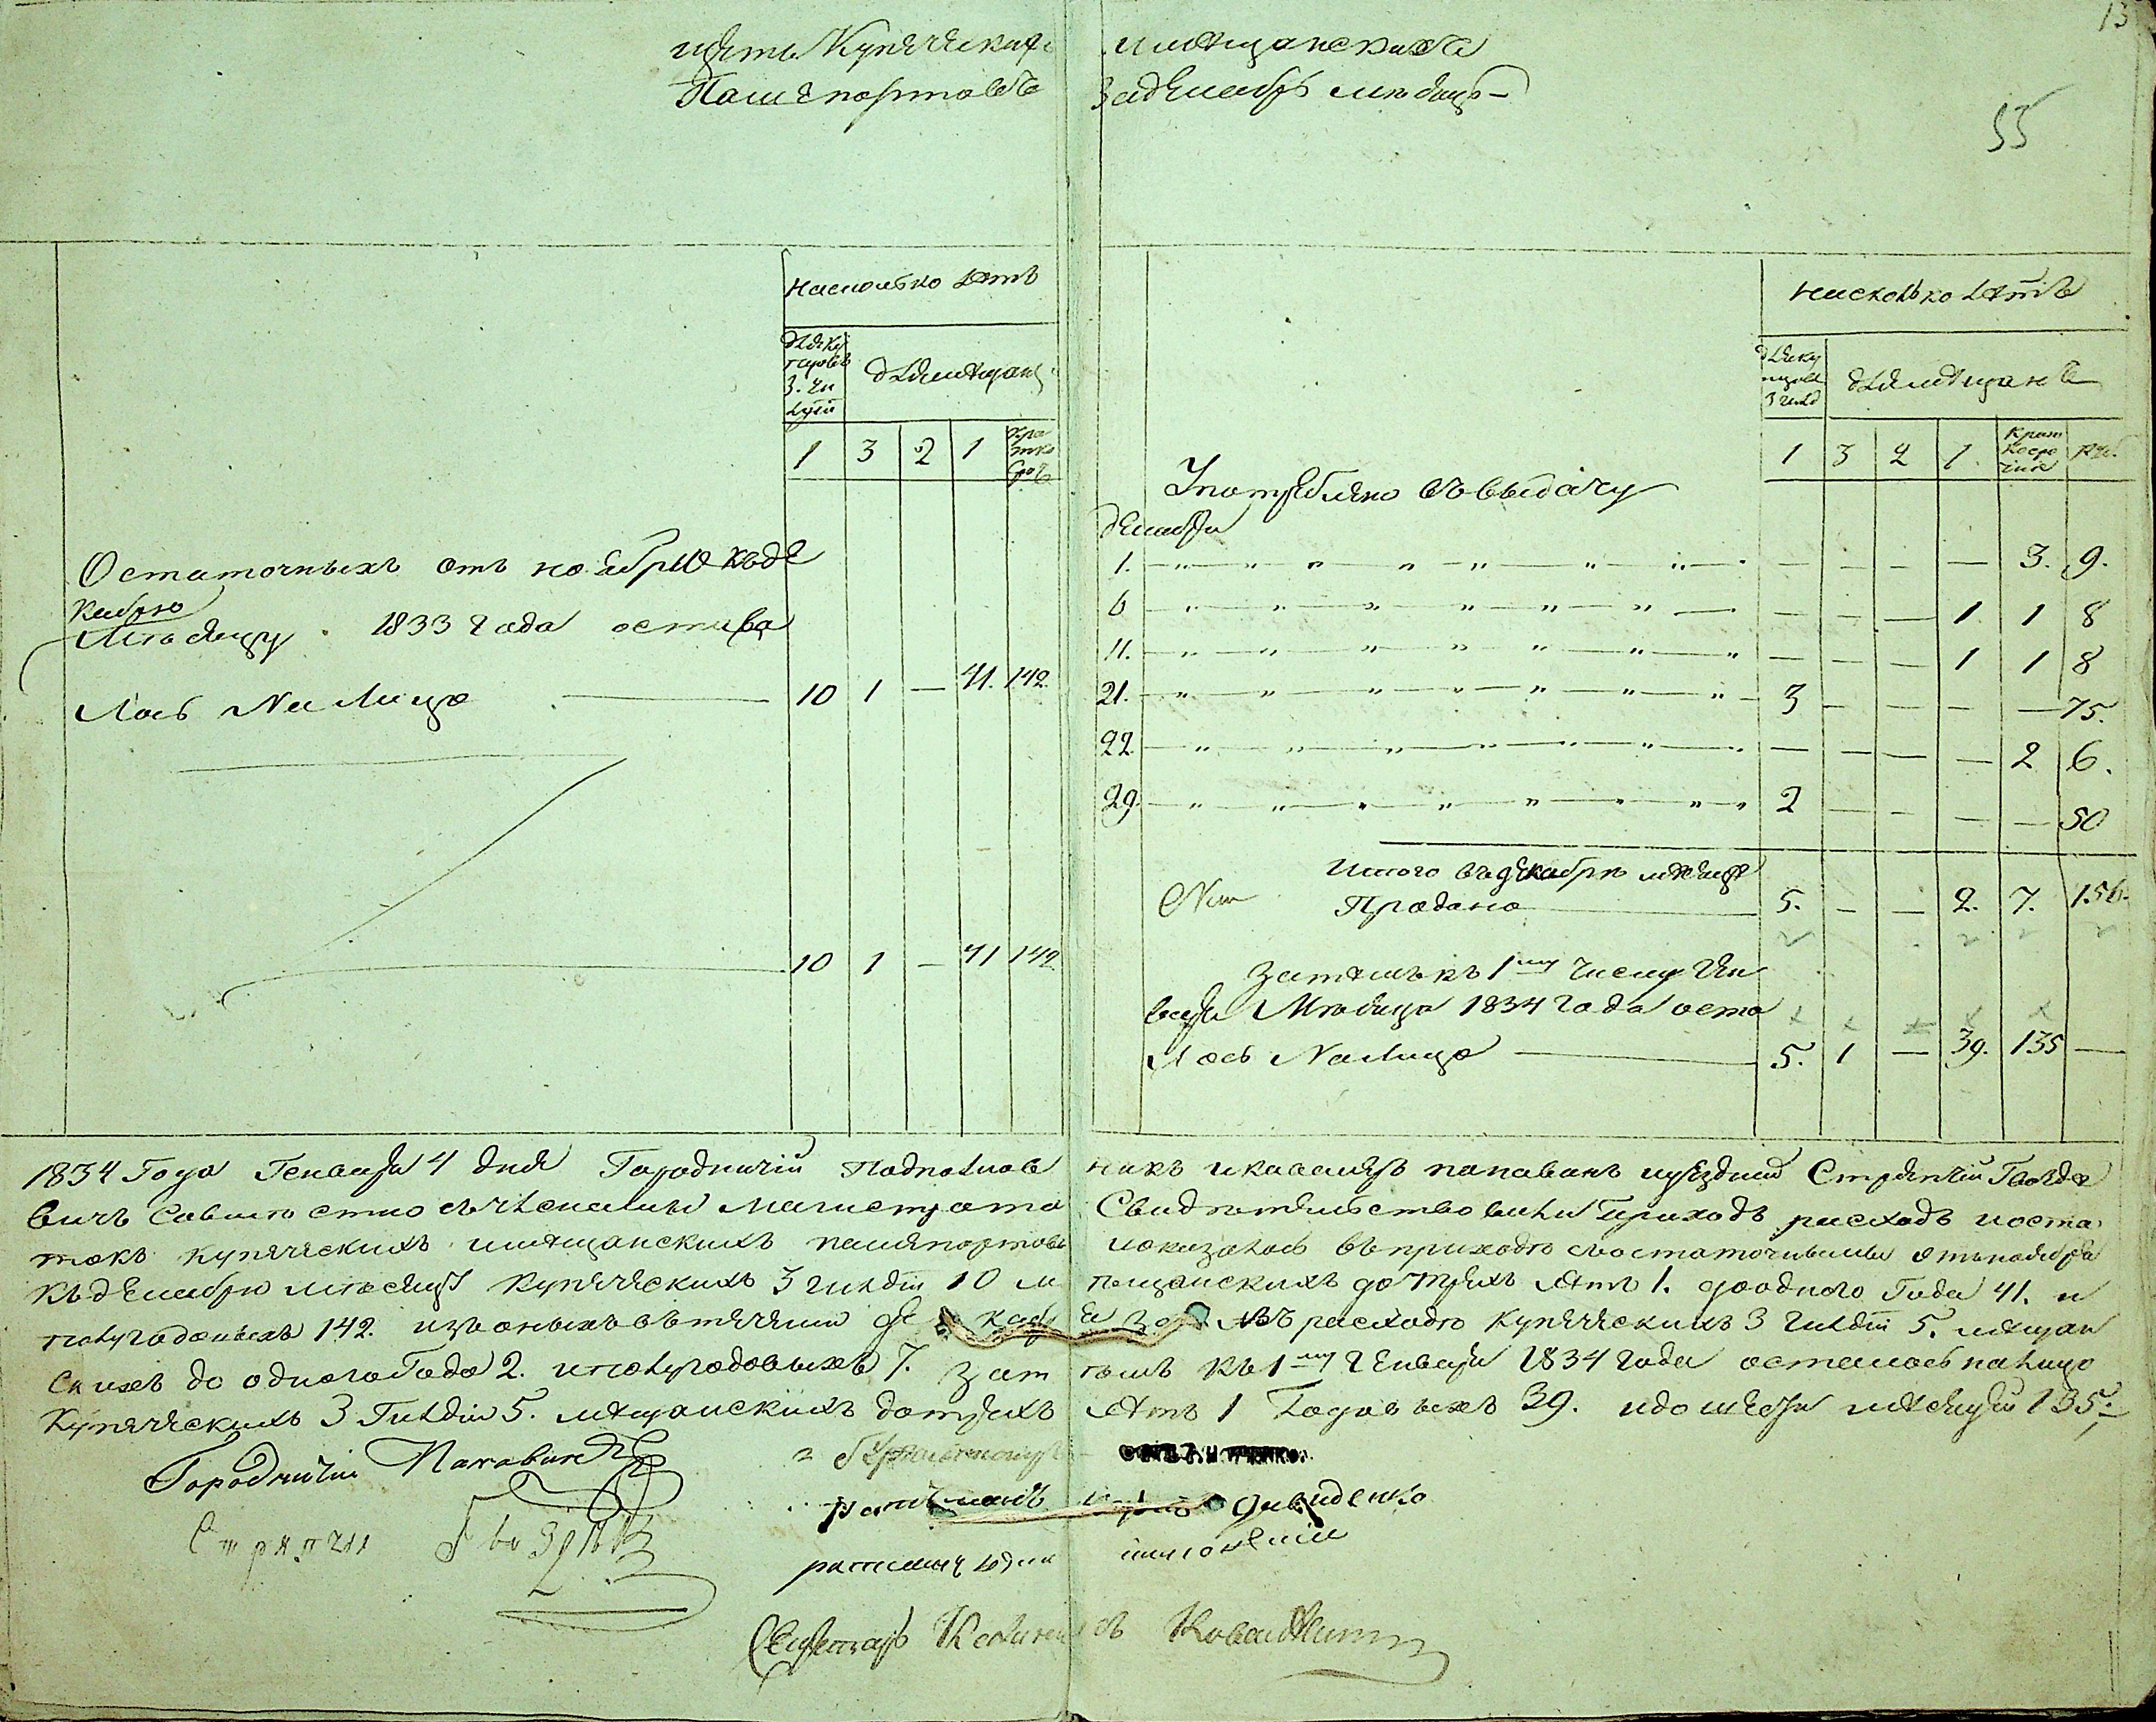 13
щетъ Купеческихъ и мѣщанскихъ
Пашепортовъ за декабрь мѣсяцъ
55
На сколько лѣтъ
Для купцовъ 3. гилдiи
Для мѣщанъ
1 3 2 1 Кратко сроч
Остаточныхъ отъ ноября къ де
кабрю
мѣсяцу 1833 года остава
лось на лицо 10 1 — 41. 142.
10 1 — 41 142
на сколько лѣтъ
для купцовъ 3 гилд
для мѣщанъ
1 3 2 1. Крат косро чные Руб.
Употреблено въ выдачу
декабря
1. — — — — 3. 9.
6 — — — 1. 1 8
11. — — — 1 1 8
21. 3 — — — — 75.
22 — — — — 2 6.
29. 2 — — — — 50
Итого въ декабрѣ мѣсяцѣ
Продано 5. — — 2. 7. 156.
Затѣмъ къ 1му числу Ген
варя Мѣсяца 1834 года оста
лось На лицо 5. 1 — 39. 135 —
1834 Года Генваря 4 дня Городничiй Подполков никъ и кавалеръ уѣздный Стряпчiй Гвозде
вичъ Совмѣстно съ членами магистрата Свидѣтельствовали Приходъ расходъ и оста
токъ купеческихъ и мѣщанскихъ пашпортовъ показалось въ приходѣ съ остаточными отъ ноября
къ декабрю мѣсяцу Купеческихъ 3 гилдiи 10 мѣщанскихъ до трехъ лѣтъ 1. до одного Года 41. и
полугодовыхъ 142. изъ оныхъ въ теченiи декабря въ расходѣ Купеческихъ 3 гилдiи 5. мѣщан
скихъ до одного Года 2. и полугодовыхъ 7. Затѣмъ къ 1му Генваря 1834 года осталось на лицо
Купеческихъ 3 Гилдiи 5. мѣщанскихъ до трехъ лѣтъ 1 Годовыхъ 39. и до шести мѣсяцей 135.
Городничiй
Стряпчiй
Ратманъ Давиденко
ратманъ
Секретарь